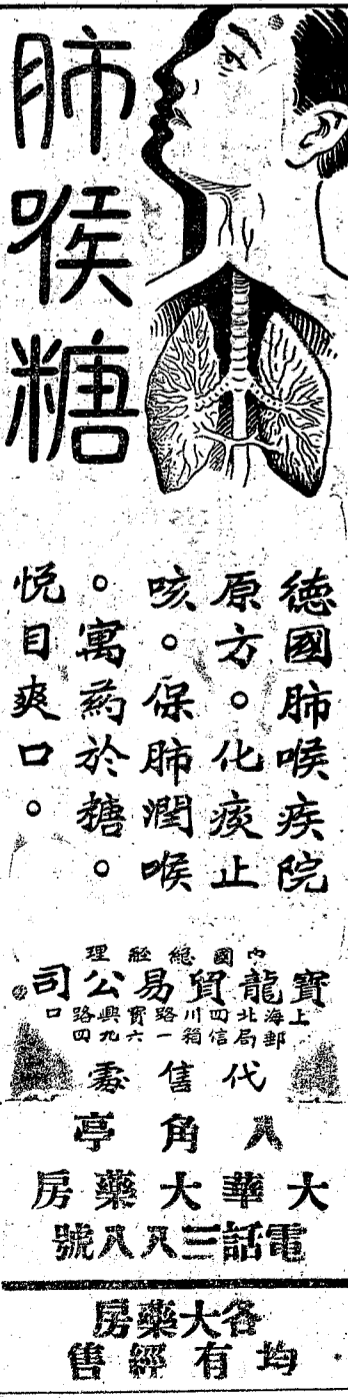 肺喉糖
德國肺喉疾院
原方。化痰止
咳。保肺潤喉
。寓葯於糖。
悦目爽口。
内國總經理
寶龍貿易公司
上海北四川路寶興路口
郵局信箱一六九四
代售處
八角亭
大華大藥房
電話三八八號
各大藥房
均有經售